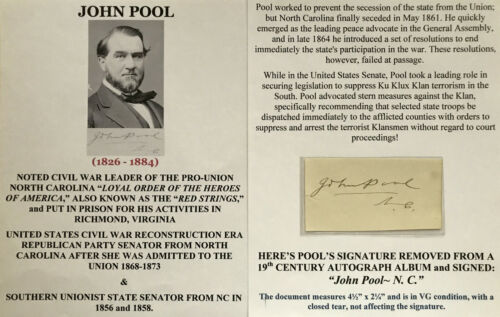 JOHN POOL
John Pool
N. C.
(1826 - 1884)
NOTED CIVIL WAR LEADER OF THE PRO-UNION
NORTH CAROLINA “LOYAL ORDER OF THE HEROES
OF AMERICA,” ALSO KNOWN AS THE “RED STRINGS,”
and PUT IN PRISON FOR HIS ACTIVITIES IN
RICHMOND, VIRGINIA
UNITED STATES CIVIL WAR RECONSTRUCTION ERA
REPUBLICAN PARTY SENATOR FROM NORTH
CAROLINA AFTER SHE WAS ADMITTED TO THE
UNION 1868-1873
&
SOUTHERN UNIONIST STATE SENATOR FROM NC IN
1856 and 1858.
Pool worked to prevent the secession of the state from the Union;
but North Carolina finally seceded in May 1861. He quickly
emerged as the leading peace advocate in the General Assembly,
and in late 1864 he introduced a set of resolutions to end
immediately the state's participation in the war. These resolutions,
however, failed at passage.
While in the United States Senate, Pool took a leading role in
securing legislation to suppress Ku Klux Klan terrorism in the
South. Pool advocated stern measures against the Klan,
specifically recommending that selected state troops be
dispatched immediately to the afflicted counties with orders to
suppress and arrest the terrorist Klansmen without regard to court
proceedings!
John Pool
N. C.
HERE'S POOL'S SIGNATURE REMOVED FROM A
19th CENTURY AUTOGRAPH ALBUM and SIGNED:
“John Pool~ N. C.”
The document measures 4½” x 2¼” and is in VG condition, with a
closed tear, not affecting the signature.